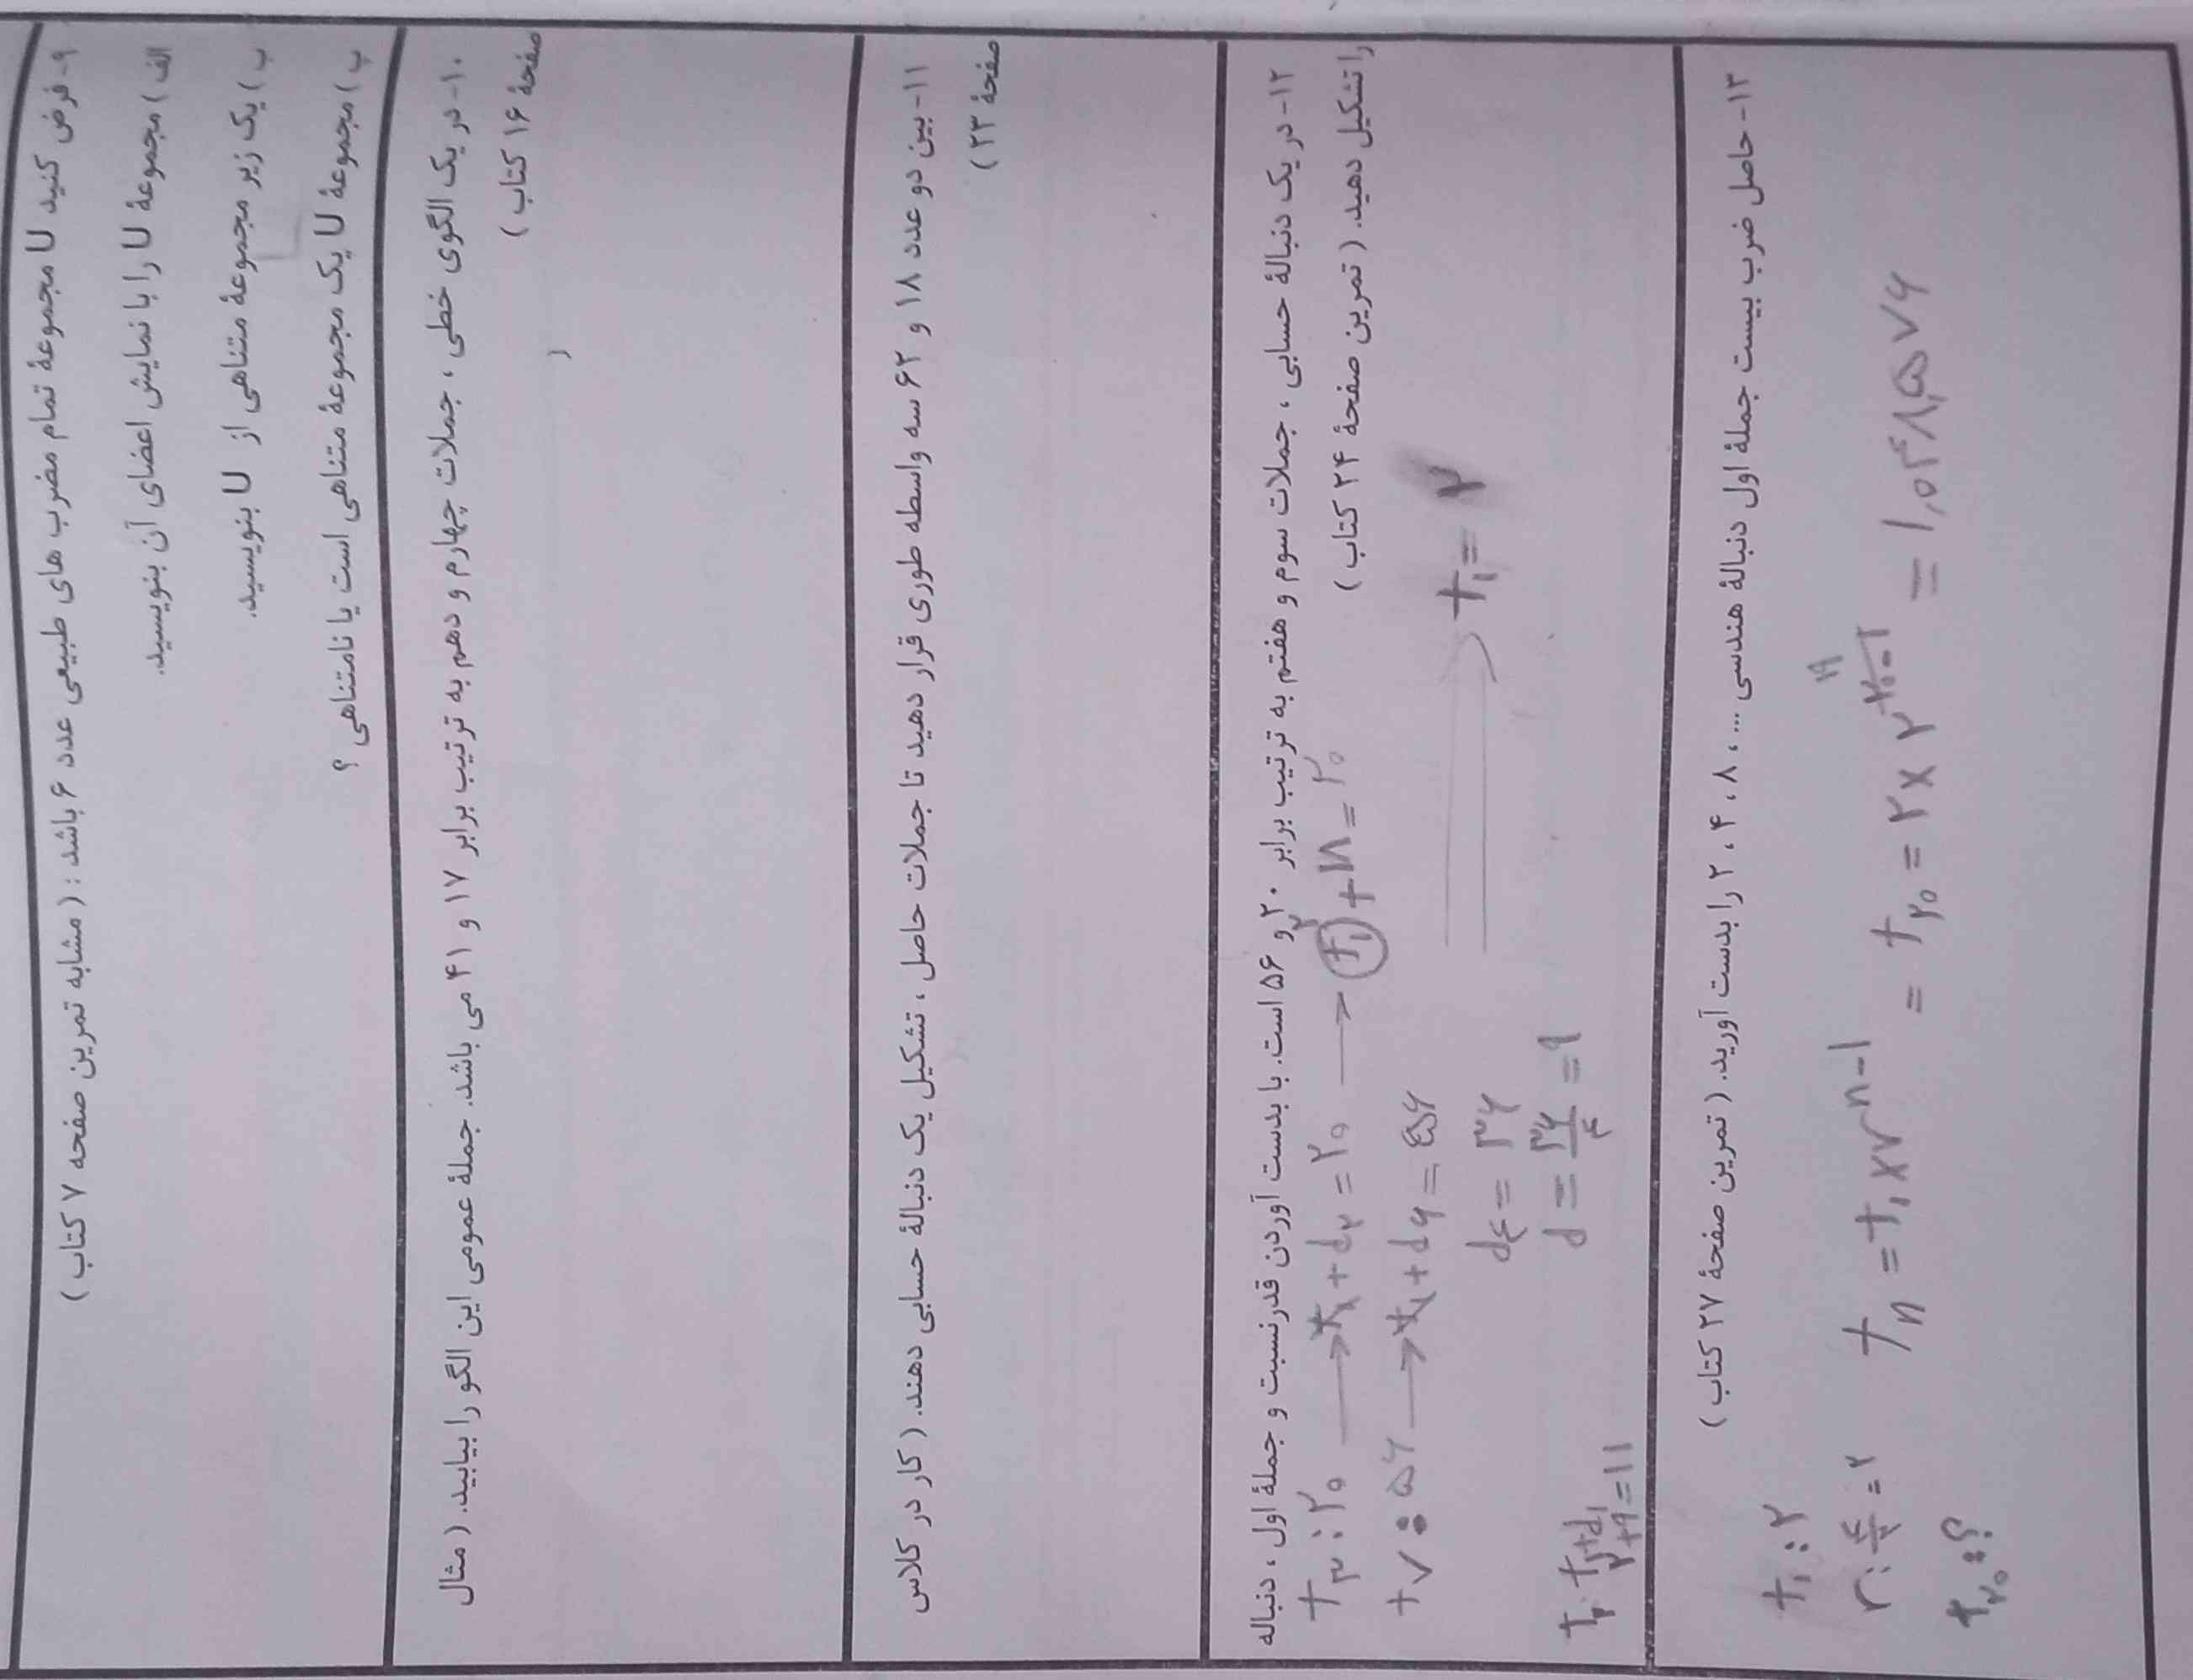 ۹- فرض کنید U مجموعهٔ تمام مضرب های طبیعی عدد ۶ باشد : ( مشابه تمرین صفحه ۷ کتاب )
الف ) مجموعهٔ U را با نمایش اعضای آن بنویسید.
ب ) یک زیر مجموعهٔ متناهی از U بنویسید.
پ ) مجموعهٔ U یک مجموعهٔ متناهی است یا نامتناهی ؟
۱۰- در یک الگوی خطی ، جملات چهارم و دهم به ترتیب برابر ۱۷ و ۴۱ می باشد. جملهٔ عمومی این الگو را بیابید. ( مثال
صفحهٔ ۱۶ کتاب )
۱۱- بین دو عدد ۱۸ و ۶۲ سه واسطه طوری قرار دهید تا جملات حاصل ، تشکیل یک دنبالهٔ حسابی دهند. ( کار در کلاس
صفحهٔ ۲۳ )
۱۲- در یک دنبالهٔ حسابی ، جملات سوم و هفتم به ترتیب برابر ۲۰ و ۵۶ است. با بدست آوردن قدرنسبت و جملهٔ اول ، دنباله
را تشکیل دهید. ( تمرین صفحهٔ ۲۴ کتاب )
t۳ : ۲۰ → t۱ + d۲ = ۲۰ → t۱ + ۱۸ = ۲۰
t۷ : ۵۶ → t۱ + d۶ = ۵۶
t۱ = ۲
d۴ = ۳۶
d = ۳۶/۴ = ۹
t۲ : t۱ + d۱
۲ + ۹ = ۱۱
۱۳- حاصل ضرب بیست جملهٔ اول دنبالهٔ هندسی ... ، ۸ ، ۴ ، ۲ را بدست آورید. ( تمرین صفحهٔ ۲۷ کتاب )
t۱ : ۲
r : ۴/۲ = ۲
t۲۰ : ؟
tn = t۱ × r^n-۱ = t۲۰ = ۲ × ۲^۲۰-۱ = ۱,۰۴۸,۵۷۶
۱۹